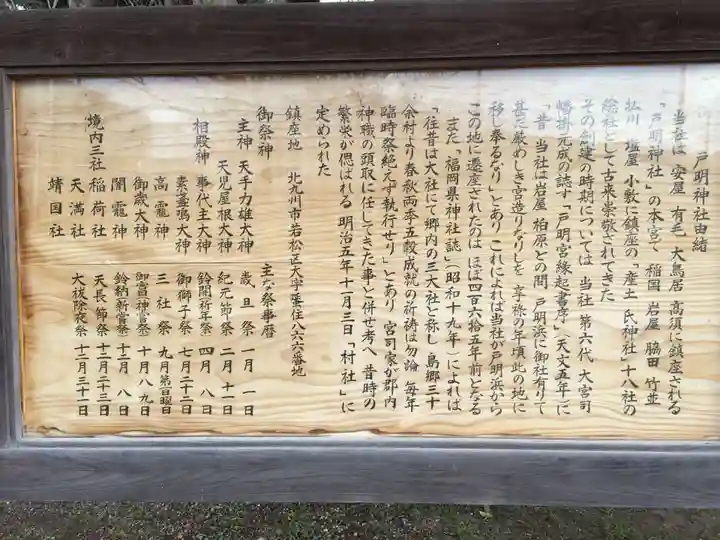 戸明神社由緒
当社は 安屋 有毛 大鳥居 高須に鎮座される
「戸明神社」の本宮で 稲国 岩屋 脇田 竹並
払川 塩屋 小敷に鎮座の「産土 氏神社」十八社の
総社として古来崇敬されてきた
その創建の時期については 当社 第六代 大宮司
幡掛元成の誌す「戸明宮縁起書序」(天文五年)に
「昔 当社は岩屋 柏原との間 戸明浜に御社有りて
甚だ厳めしき宮造りなりしを 享禄の年頃此の地に
移し奉るなり」とあり これによれば当社が戸明浜から
この地に遷座されたのは ほぼ四百六拾五年前となる
また「福岡県神社誌」(昭和十九年)によれば
「往昔は大社にて郷内の三大社と称し 島郷三十
余村より春秋両季五穀成就の祈祷は勿論 毎年
臨時祭絶えず執行せり」とあり 宮司家が郡内
神職の頭取に任してきた事と併せ考へ 昔時の
繁栄が偲ばれる 明治五年十月三日「村社」に
定められた
鎮座地 北九州市若松区大字蜑住八六六番地
御祭神
主神 天手力雄大神
天児屋根大神
相殿神 事代主大神
素盞鳴大神
高龗神
御歳大神
闇龗神
境内三社 稲荷社
天満社
靖国社
主な祭事暦
歳旦祭 一月一日
紀元節祭 二月十一日
鈴開祈年祭 四月八日
御獅子祭 七月二十二日
三社祭 九月第一日曜日
御富神幸祭 十月八、九日
鈴納新嘗祭 十二月八日
天長節祭 十二月二十三日
大祓除夜祭 十二月三十一日